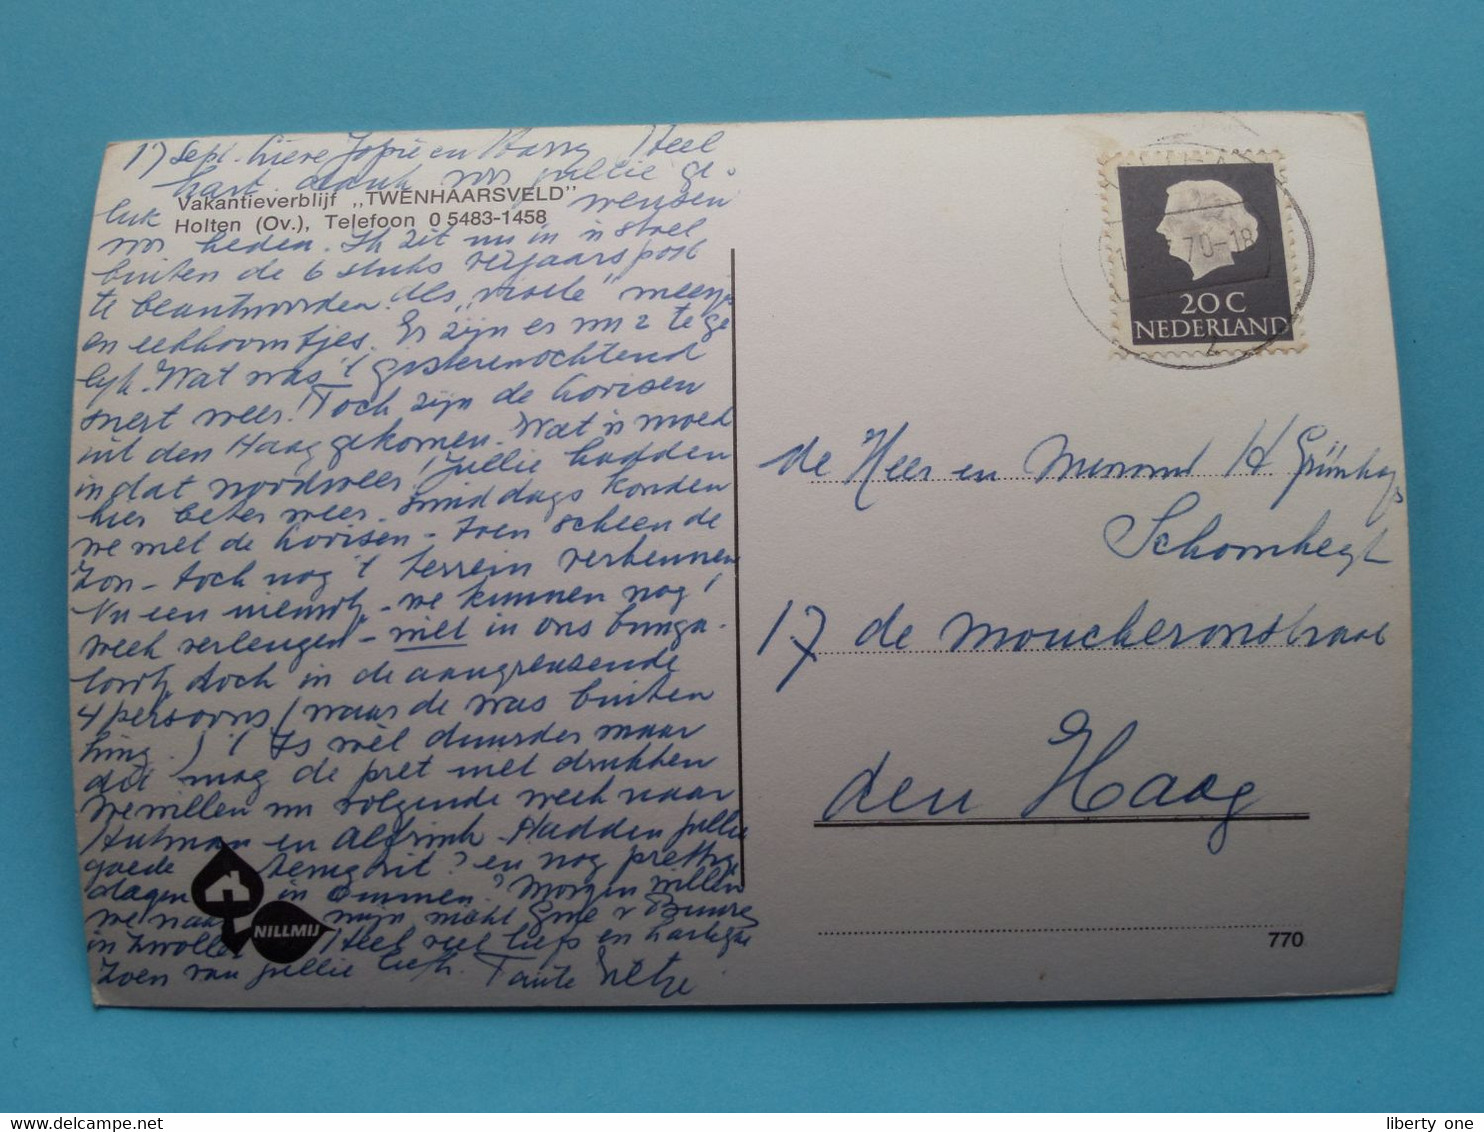 17 Sept. Lieve Jopie en Harry Heel
hart. dank voor jullie ge-
Vakantieverblijf „TWENHAARSVELD"
Holten (Ov.), Telefoon 0 5483-1458
luk wensen
voor heden. Ik zit nu in 'n stoel
buiten de 6 stuks verjaarspost
te beantwoorden. Als „visite"
en eekhoorntjes. Er zijn er nu 2 tege
lijk. Wat was 't gisterenochtend
snert weer! Toch zijn de
uit den Haag gekomen. Wat 'n moed
in dat noodweer! Jullie hadden
hier beter weer. Smiddags konden
we met de - toen scheen de
zon - toch nog 't terrein verkennen
Nu een nieuwtje - we kunnen nog 1
week verlengen - niet in ons bunga-
lowtje doch in de aangrenzende
4 persoons (waar de was buiten
hing)! Is wel duurder maar
dat mag de pret niet drukken
We willen nu volgende week naar
en Hadden jullie
goede terugrit? en nog prettige
dagen in Ommen? Morgen willen
we naar mijn nicht
in Zwolle Heel veel liefs en hartelijke
zoen van jullie liefh. Tante
NILLMIJ
70-18
20 C
NEDERLAND
de Heer en H
17 de Moucheronstraat
den Haag
770
liberty one